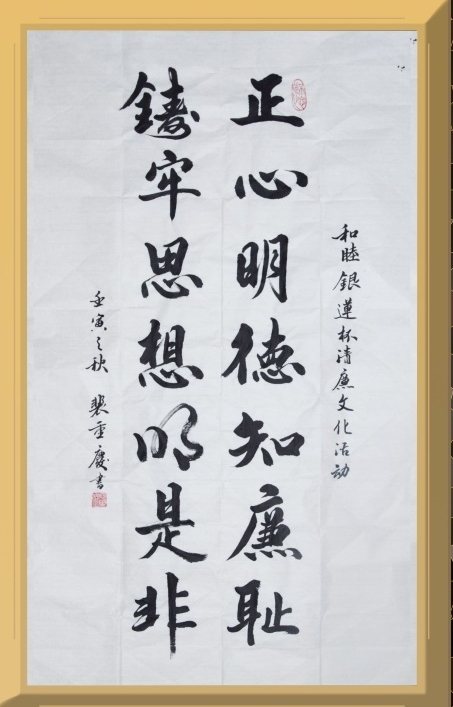 和睦銀蓮杯清廉文化活动
正心明德知廉耻
鑄牢思想明是非
壬寅之秋 裴重慶書